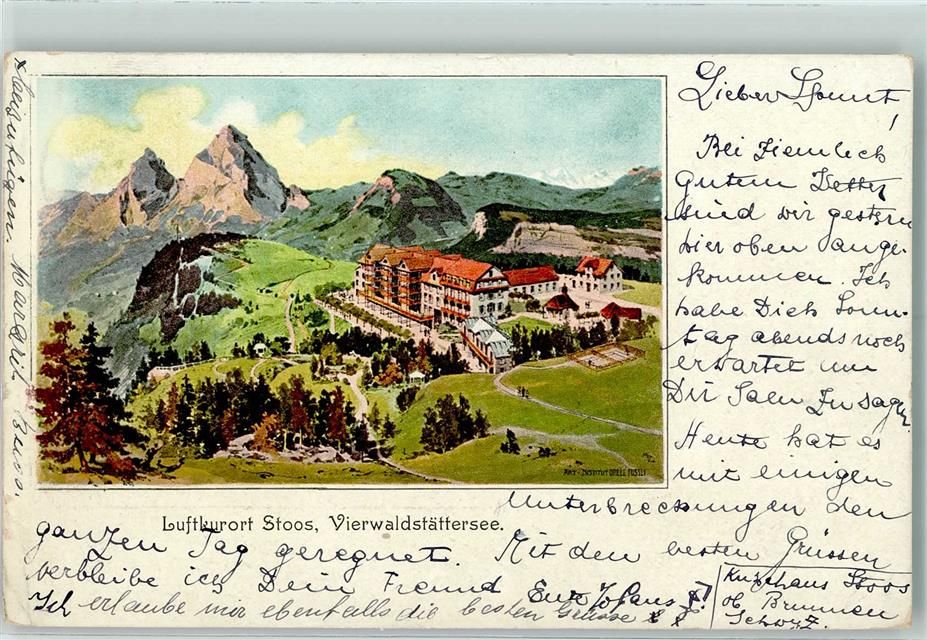 Lieber
!
Bei ziemlich
gutem Wetter
sind wir gestern
hier oben ange-
kommen. Ich
habe Dich Sonn-
tag abends noch
erwartet um
Dir Salu zu sagen.
Heute hat es
mit einigen
Unterbrechungen den
ganzen Tag geregnet. Mit den besten Grüssen
verbleibe ich Dein Freund
Ich erlaube mir ebenfalls die besten Grüsse
Margrit
Kurhaus Stoos
ob Brunnen
Schwyz.
ART. INSTITUT ORELL FÜSSLI
Luftkurort Stoos, Vierwaldstättersee.